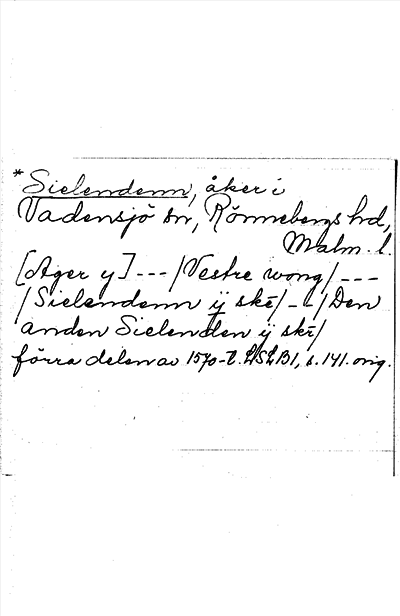 *Sielendenn, åker i
Vadensjö sn, Rönnebergs hd,
Malm. l.
[Ager y] --- / Vestre wong / ---
/ Sielendenn ij skr̄ / -- / Den
anden Sielenden ij skr̄ /
förra delen av 1570-t. LSLB1, s. 141. orig.